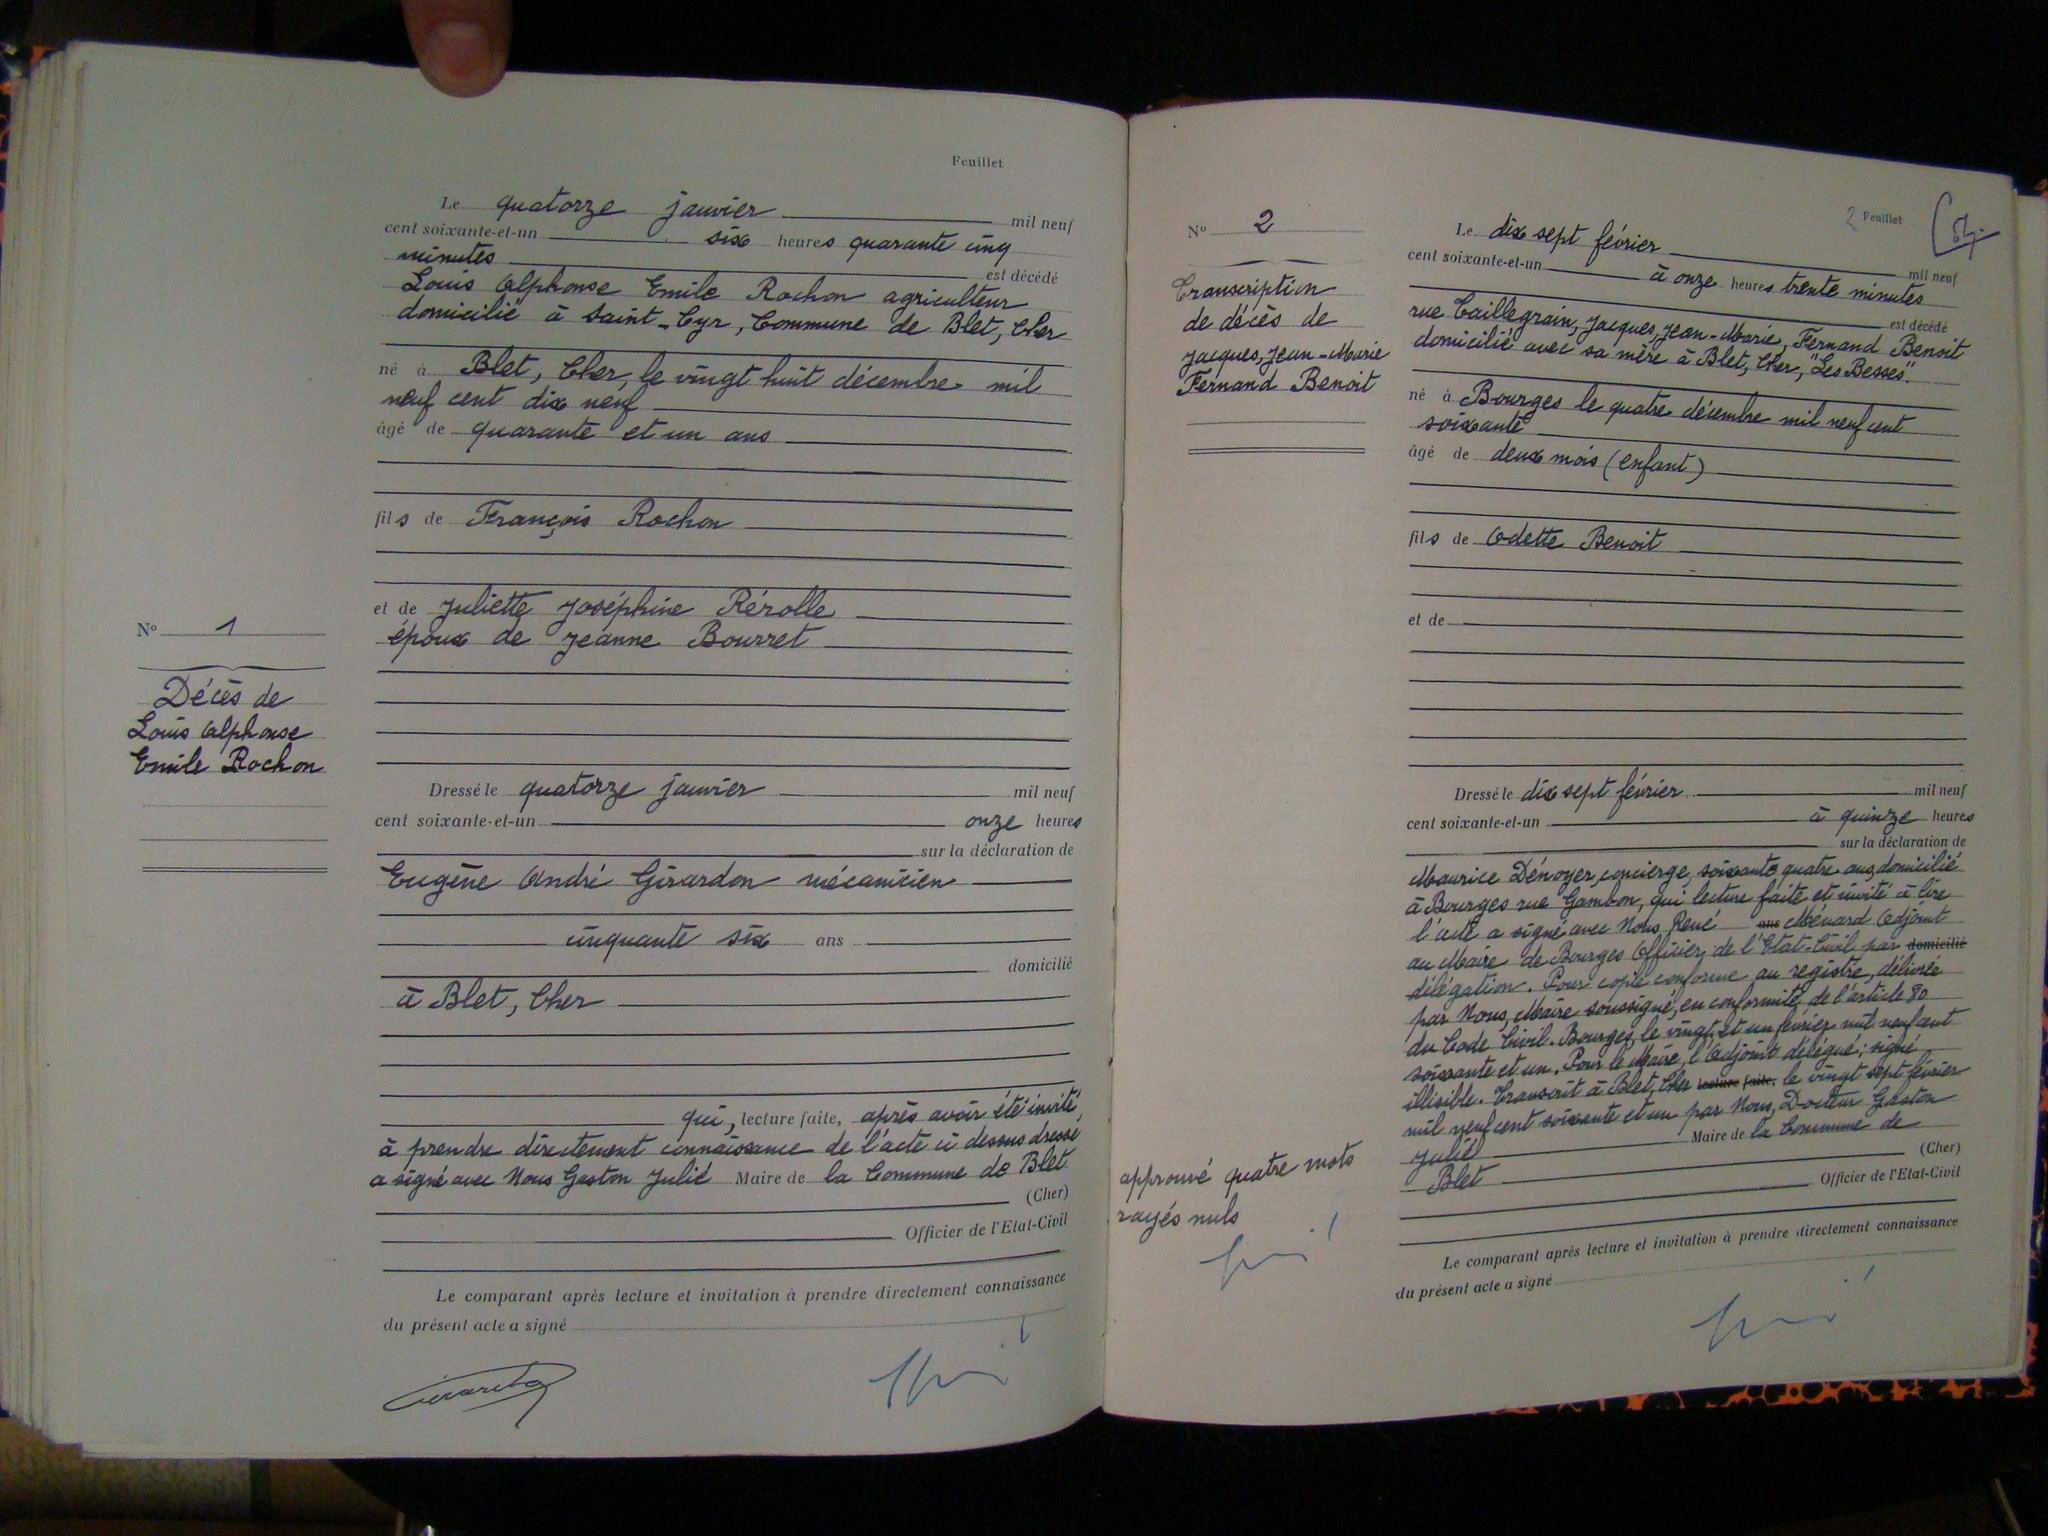 Feuillet
Le quatorze janvier mil neuf
cent soixante-et-un six heures quarante cinq
minutes est décédé
Louis Alphonse Emile Rochon agriculteur
domicilié à Saint-Cyr, Commune de Blet, Cher
né à Blet, Cher, le vingt huit décembre mil
neuf cent dix neuf
âgé de quarante et un ans
fils de François Rochon
et de Juliette Joséphine Rérolle
époux de Jeanne Bourret
N° 1
Décès de
Louis Alphonse
Emile Rochon
Dressé le quatorze janvier mil neuf
cent soixante-et-un onze heures
sur la déclaration de
Eugène André Girardon mécanicien
cinquante six ans
domicilié
à Blet, Cher
qui, lecture faite, après avoir été invité
à prendre directement connaissance de l'acte ci dessus dressé
a signé avec Nous Gaston Julié Maire de la Commune de Blet
(Cher)
Officier de l'Etat-Civil
Le comparant après lecture et invitation à prendre directement connaissance
du présent acte a signé
2 Feuillet
N° 2
Transcription
de décès de
Jacques, Jean-Marie
Fernand Benoit
Le dix sept février mil neuf
cent soixante-et-un à onze heures trente minutes
est décédé
rue Taillegrain, Jacques, Jean-Marie, Fernand Benoit
domicilié avec sa mère à Blet, Cher, "Les Besses".
né à Bourges le quatre décembre mil neuf cent
soixante
âgé de deux mois (enfant)
fils de Odette Benoit
et de
Dressé le dix sept février mil neuf
cent soixante-et-un à quinze heures
sur la déclaration de
Maurice Dénoyer, concierge, soixante quatre ans, domicilié
à Bourges rue Gambon, qui lecture faite et invité à lire
l'acte a signé avec Nous René ans Ménard Adjoint
au Maire de Bourges Officier de l'Etat-Civil par domicilié
délégation. Pour copie conforme au registre, délivrée
par Nous, Maire soussigné, en conformité de l'article 80
du Code Civil. Bourges, le vingt et un février mil neuf cent
soixante et un. Pour le Maire, l'Adjoint délégué; signé
illisible. Transcrit à Blet, Cher lecture faite, le vingt sept février
mil neuf cent soixante et un par Nous, Docteur Gaston
Julié Maire de la Commune de
Blet (Cher)
Officier de l'Etat-Civil
approuvé quatre mots
rayés nuls
Le comparant après lecture et invitation à prendre directement connaissance
du présent acte a signé